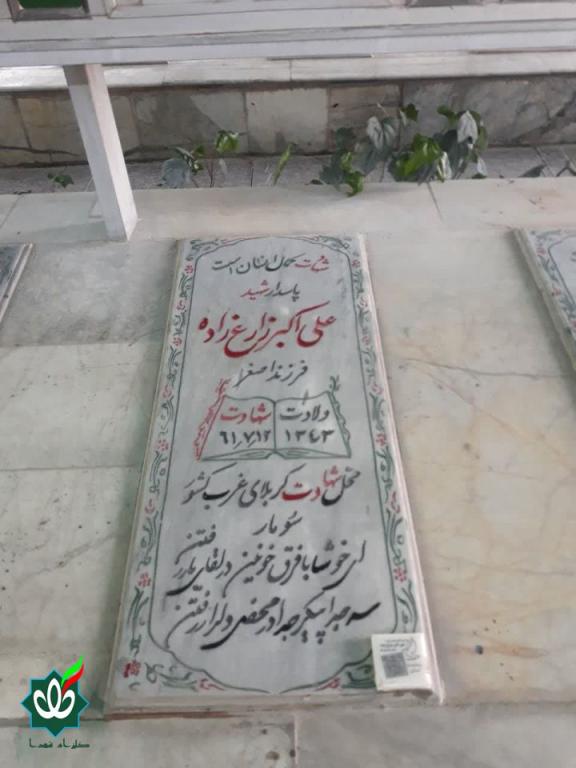 شهادت کمال انسان است
پاسدار شهید
علی اکبر زارع زاده
فرزند اصغر
ولادت شهادت
۱۳۴۳ ۶۱٫۷٫۱۲
محل شهادت کربلای غرب کشور
سومار
ای خوشا با فرق خونین در لقای یار رفتن
سر جدا پیکر جدا در محفل دلدار رفتن
گلزار شهدا